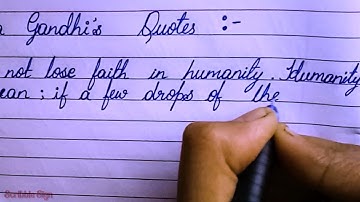 Gandhi's Quotes :-
not lose faith in humanity. Humanity
ean ; if a few drops of the
Scribble Sign